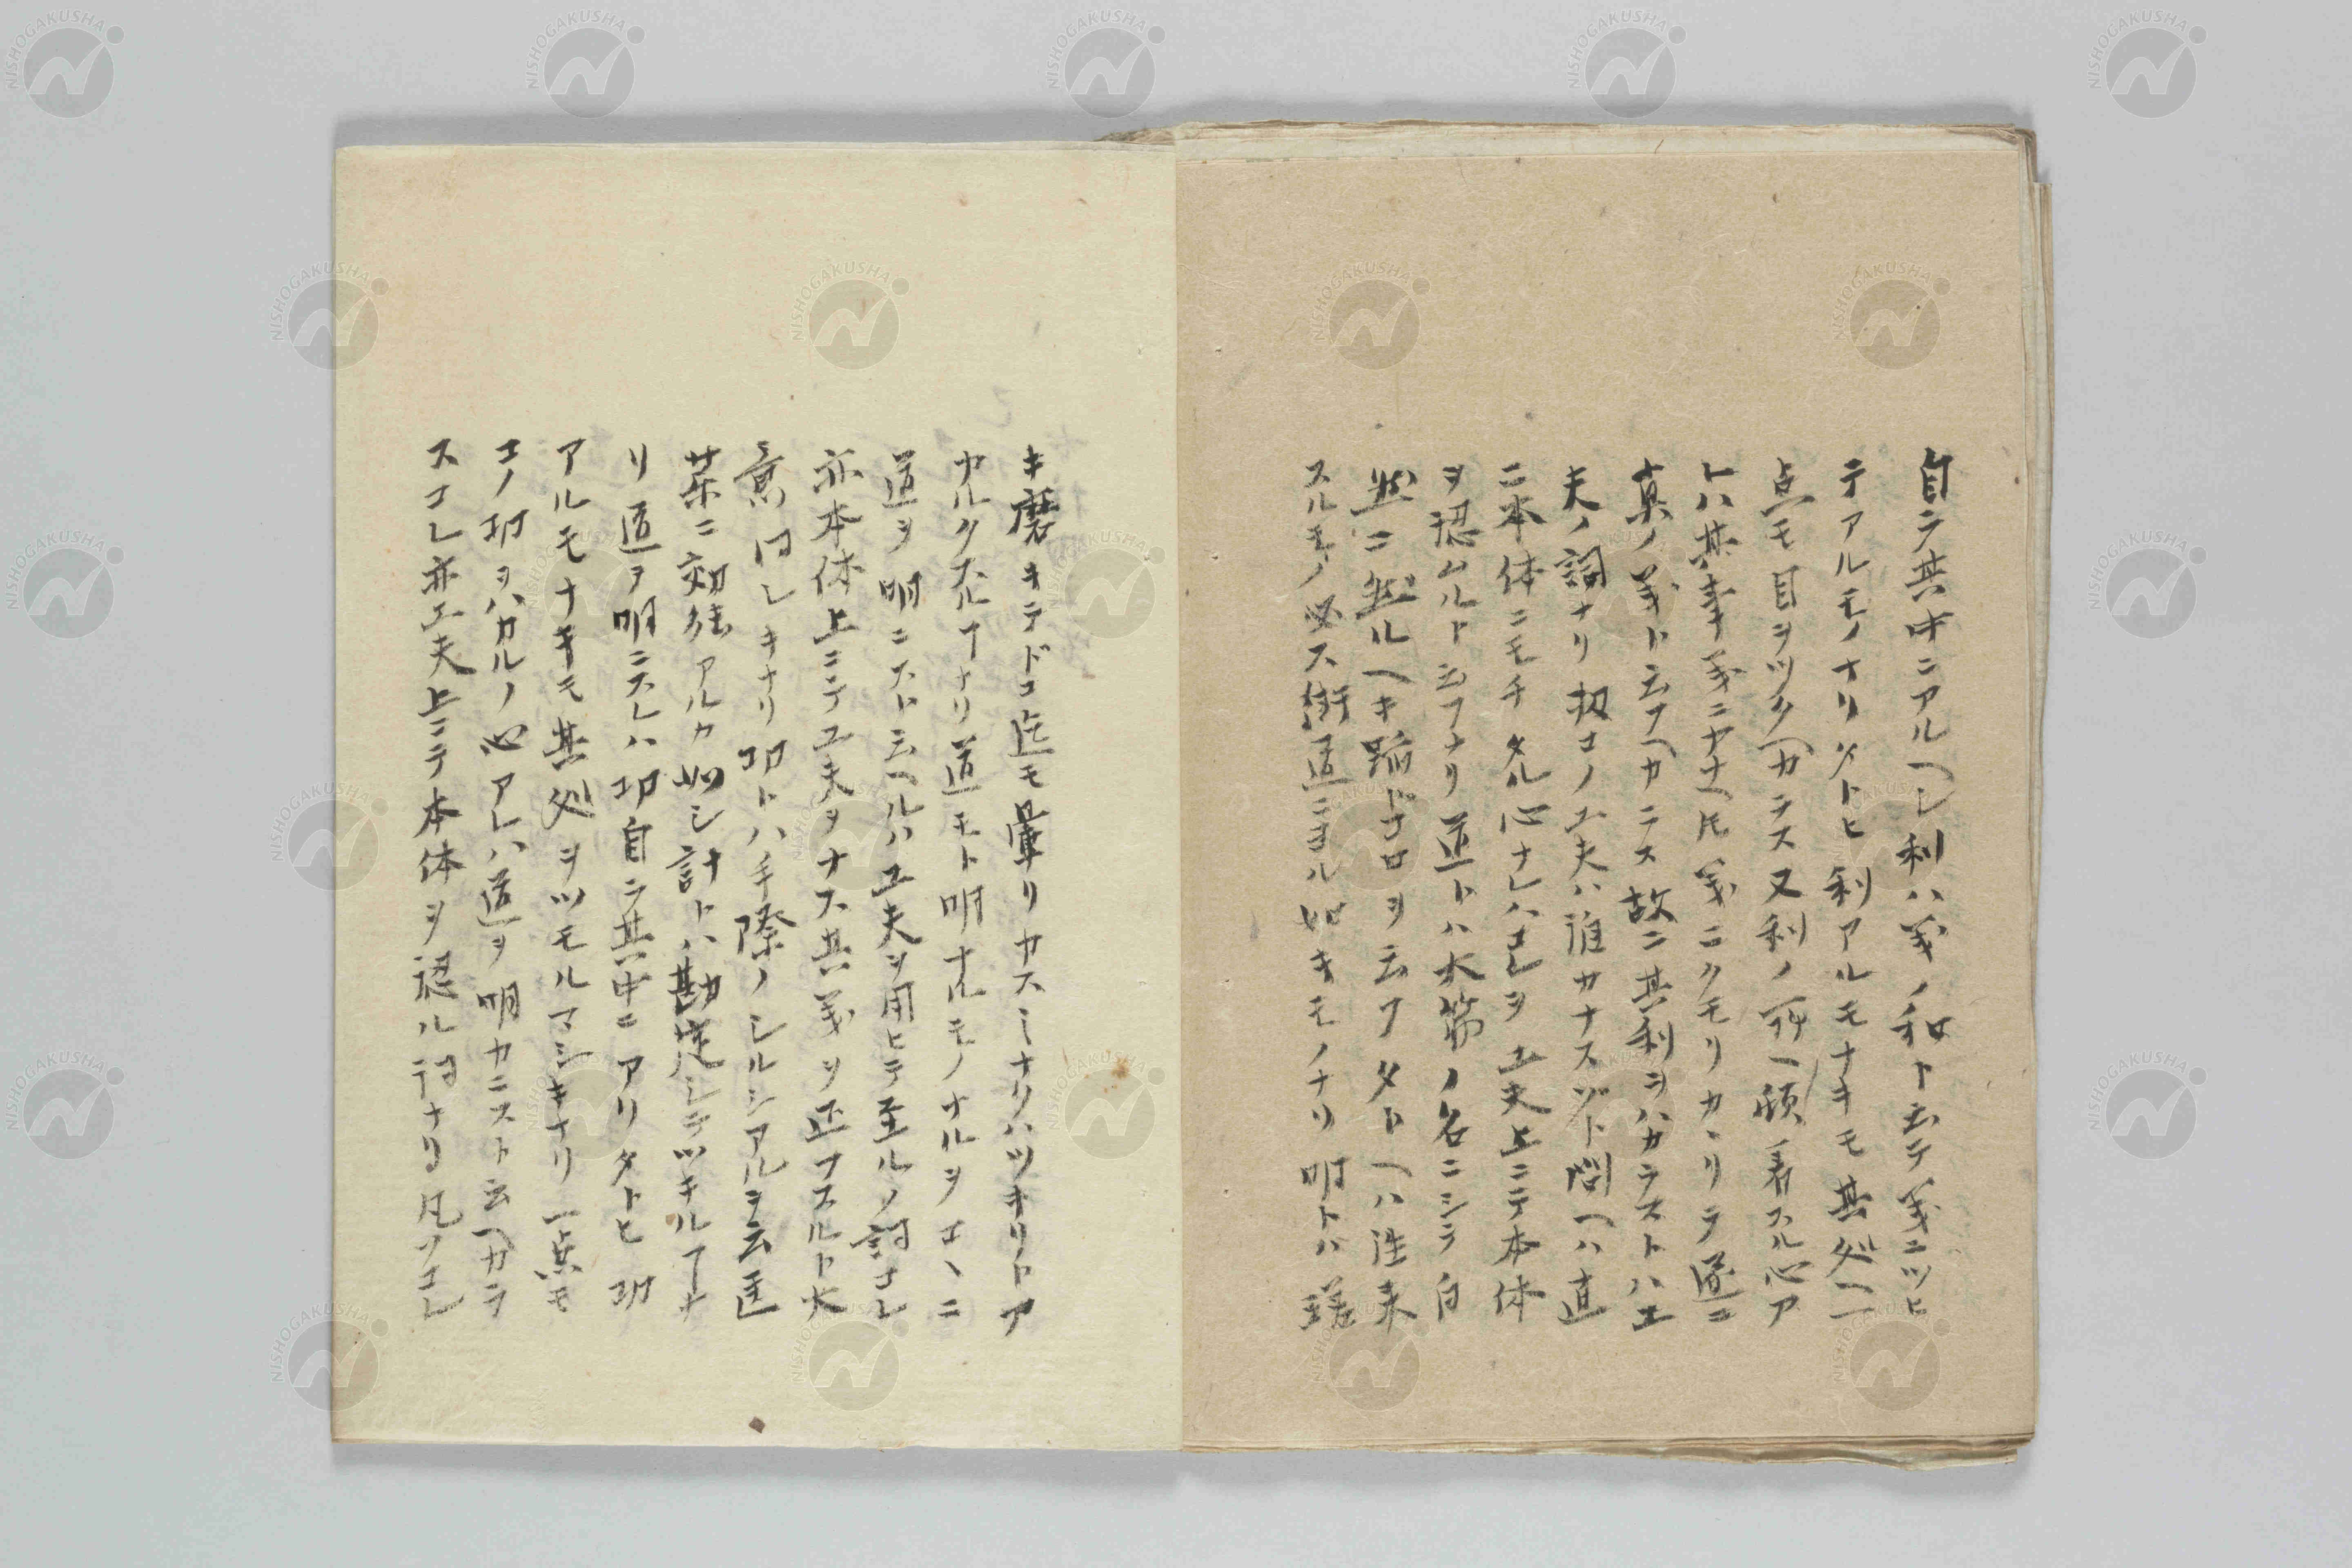 自ラ其中ニアルヘシ利ハ義ノ和ト云テ義ニツヒ
テアルモノナリタトヒ利アルモナキモ其処ヘ一
点モ目ヲツクヘカラス又利ノ所ヘ頓着スル心ア
レハ其事義ニカナヘ𪜈義ニクモリカヽリテ道ニ
真ノ義ト云フヘカラス故ニ其利ヲハカラストハ工
夫ノ詞ナリ扨コノ工夫ハ誰カナスゾト問ヘハ直
ニ本体ニモチタル心ナレハコレヲ工夫上ニテ本体
ヲ認ムルト云フナリ道トハ大筋ノ名ニシテ自
然ニ然ルヘキ筋ドコロヲ云フタトヘハ往来
スルモノ必ス街道ニヨル如キモノナリ明トハ瑳
キ磨キテドコ迄モ暈リカスミナクハツキリトア
カルクスルヿナリ道モト明ナルモノナルヲコヽニ
道ヲ明ニスト云ヘルハ工夫ヲ用ヒテ至ルノ詞コレ
亦本体上ニテ工夫ヲナス其義ヲ正フスルト大
意同シキナリ功トハ手際ノシルシアルヲ云医
薬ニ効能アルカ如シ計トハ勘定シテツモルヿナ
リ道ヲ明ニスレハ功自ラ其中ニアリタトヒ功
アルモナキモ其処ヲツモルマシキナリ一点モ
コノ功ヲハカルノ心アレハ道ヲ明カニスト云ヘカラ
スコレ亦工夫上ニテ本体ヲ認ル詞ナリ凡ソコレ
NISHOGAKUSHA